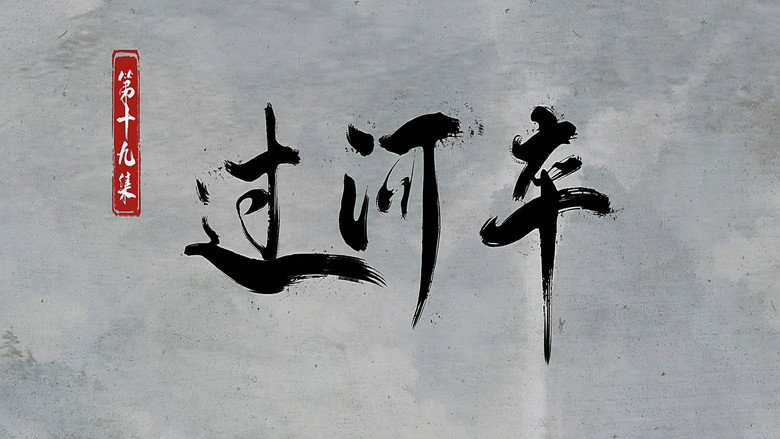 第十九集
过河卒